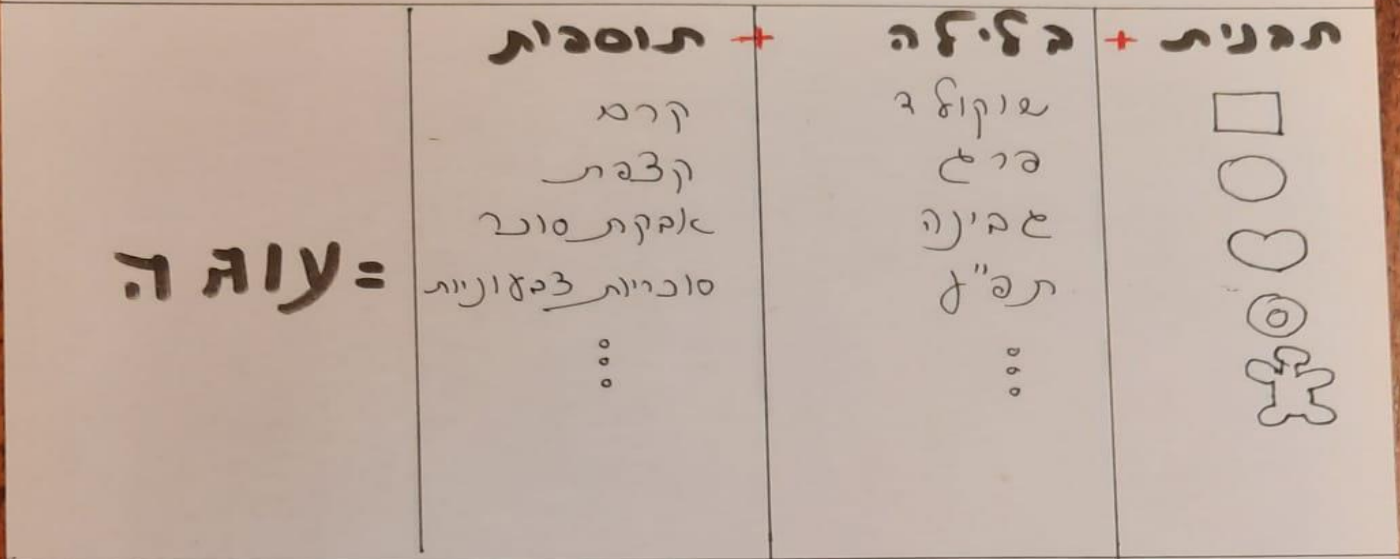 תבנית + בלילה + תוספות
שוקולד
פרג
גבינה
תפ"ע
קרם
קצפת
אבקת סוכר
סוכריות צבעוניות
=עוגה